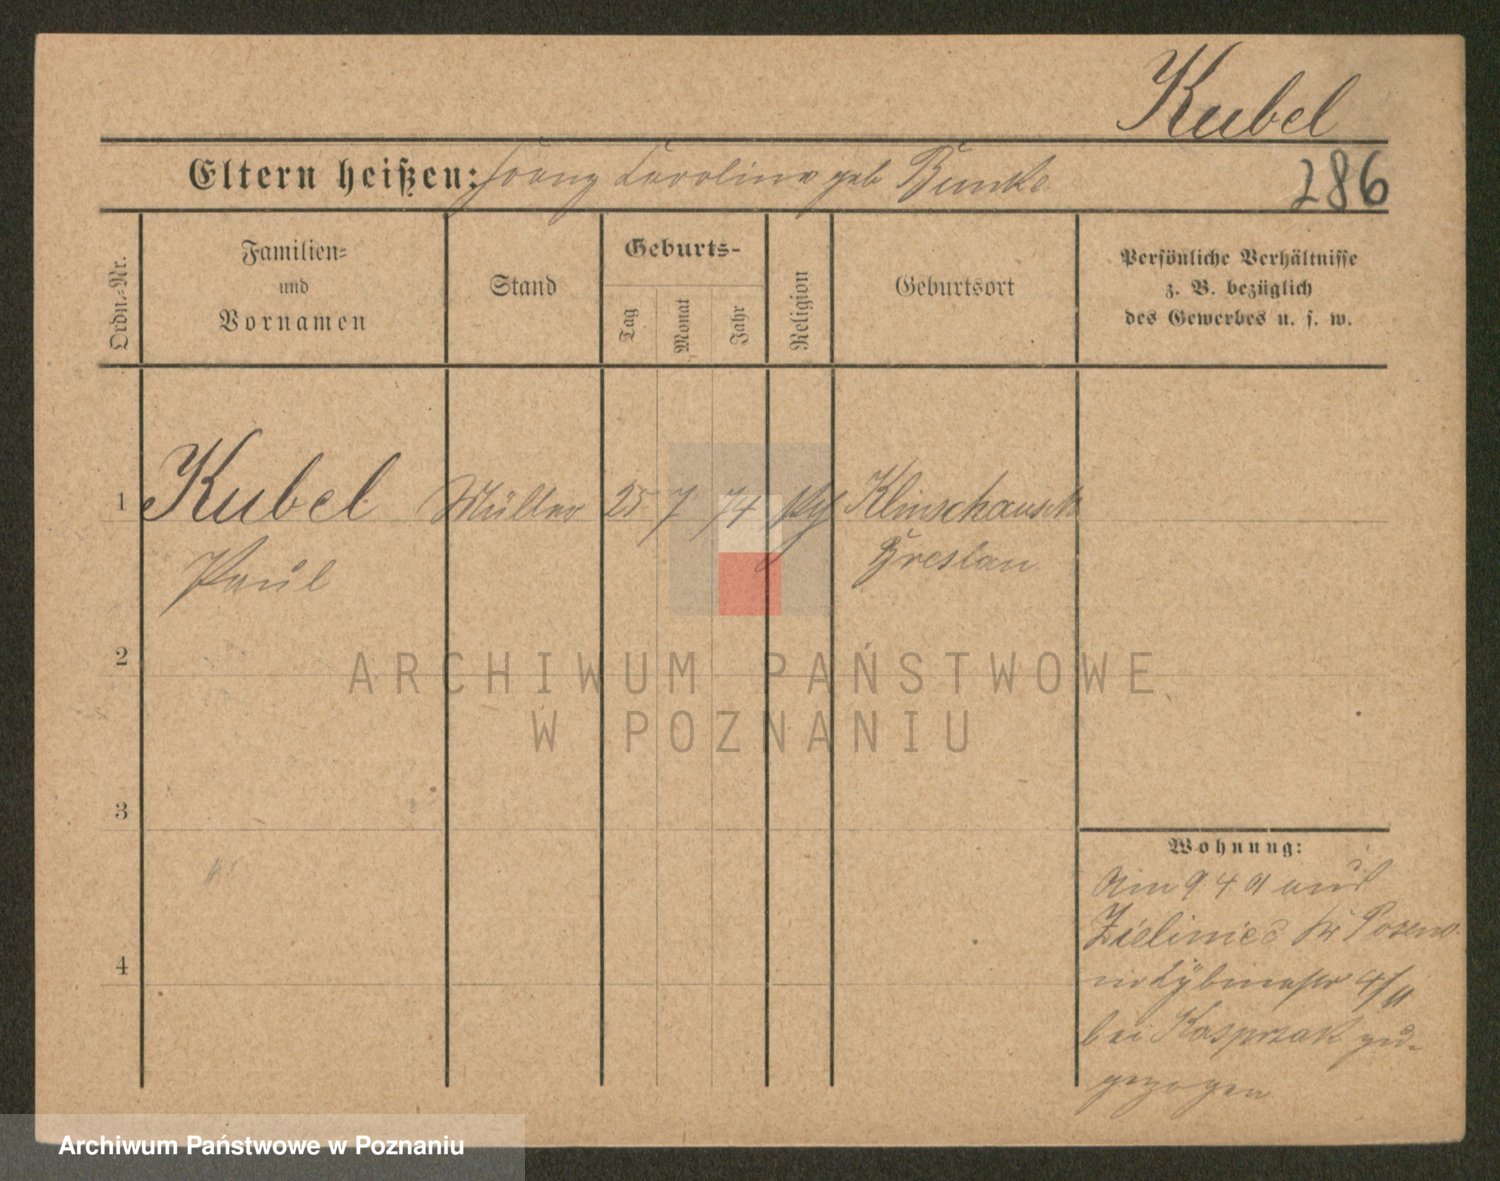 Kubel
Eltern heißen: Franz Caroline geb Bunke
286
Ordn.-Nr.
Familien-
und
Vornamen
Stand
Geburts-
Tag
Monat
Jahr
Religion
Geburtsort
Persönliche Verhältnisse
z. B. bezüglich
des Gewerbes u. s. w.
1 Kubel Müller 25 7 74 Klinschansk
Paul Breslau
2
ARCHIWUM PAŃSTWOWE
W POZNANIU
3
Wohnung:
Am 9 4 01 aus
Zieliniec Kr Posen O.
in Cybinastr 4/II
4
bei Kasprzak zu-
gezogen
Archiwum Państwowe w Poznaniu